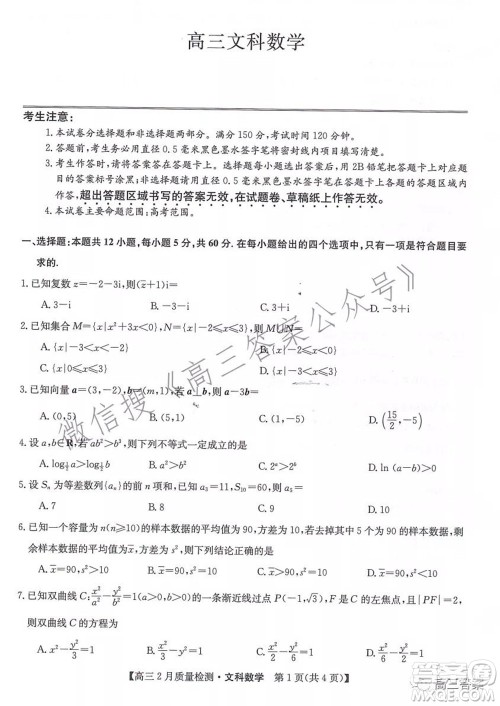 高三文科数学
考生注意:
1.本试卷分选择题和非选择题两部分。满分 150 分,考试时间 120 分钟。
2.答题前,考生务必用直径 0.5 毫米黑色墨水签字笔将密封线内项目填写清楚。
3.考生作答时,请将答案答在答题卡上。选择题每小题选出答案后,用 2B 铅笔把答题卡上对应题目的答案标号涂黑;非选择题请用直径 0.5 毫米黑色墨水签字笔在答题卡上各题的答题区域内作答,超出答题区域书写的答案无效,在试题卷、草稿纸上作答无效。
4.本试卷主要命题范围:高考范围。
一、选择题:本题共 12 小题,每小题 5 分,共 60 分. 在每小题给出的四个选项中,只有一项是符合题目要求的.
1.已知复数 z=-2-3i,则(z̅+1)i=
A.3-i B.-3-i C.3+i D.-3+i
2.已知集合 M={x|x²+3x<0},N={x|-2≤x≤3},则 M∪N=
A.{x|-3<x<-2} B.{x|-3<x≤3}
C.{x|-2≤x<0} D.{x|-2≤x≤3}
3.已知向量 a=(3,-2),
A.(0,5) B.(5,1) C.(1,-5) D.(15/2,-5)
4.设 a,b∈R,若 ab²>b³,则下列不等式一定成立的是
C.2ᵃ>2ᵇ D.ln(a-b)>0
5.设 Sₙ 为等差数列{aₙ}的前 n 项和,已知 a₃=11,S₁₀=60,则 a₅=
A.7 B.8 C.9 D.10
6.已知一个容量为 n(n≥10)的样本数据的平均值为 90,方差为 10,若在样本数据中去掉其中 5 个为 90 的样本数据,剩余样本数据的平均数为 x̅,方差为 s²,则下列选项正确的是
A.x̅=90,s²>10 B.x̅=90,s²<10 C.x̅>90,s²=10 D.x̅<90,s²=10
7.已知双曲线 C:x²/a²-y²/b²=1(a>0,b>0)的一条渐近线过点 P(-1,√3),F 是 C 的左焦点,且|PF|=2,则双曲线 C 的方程为
A.x²-y²/3=1
【高三 2 月质量检测·文科数学 第 1 页(共 4 页)】
微信搜《高三答案公众号》
高三答案